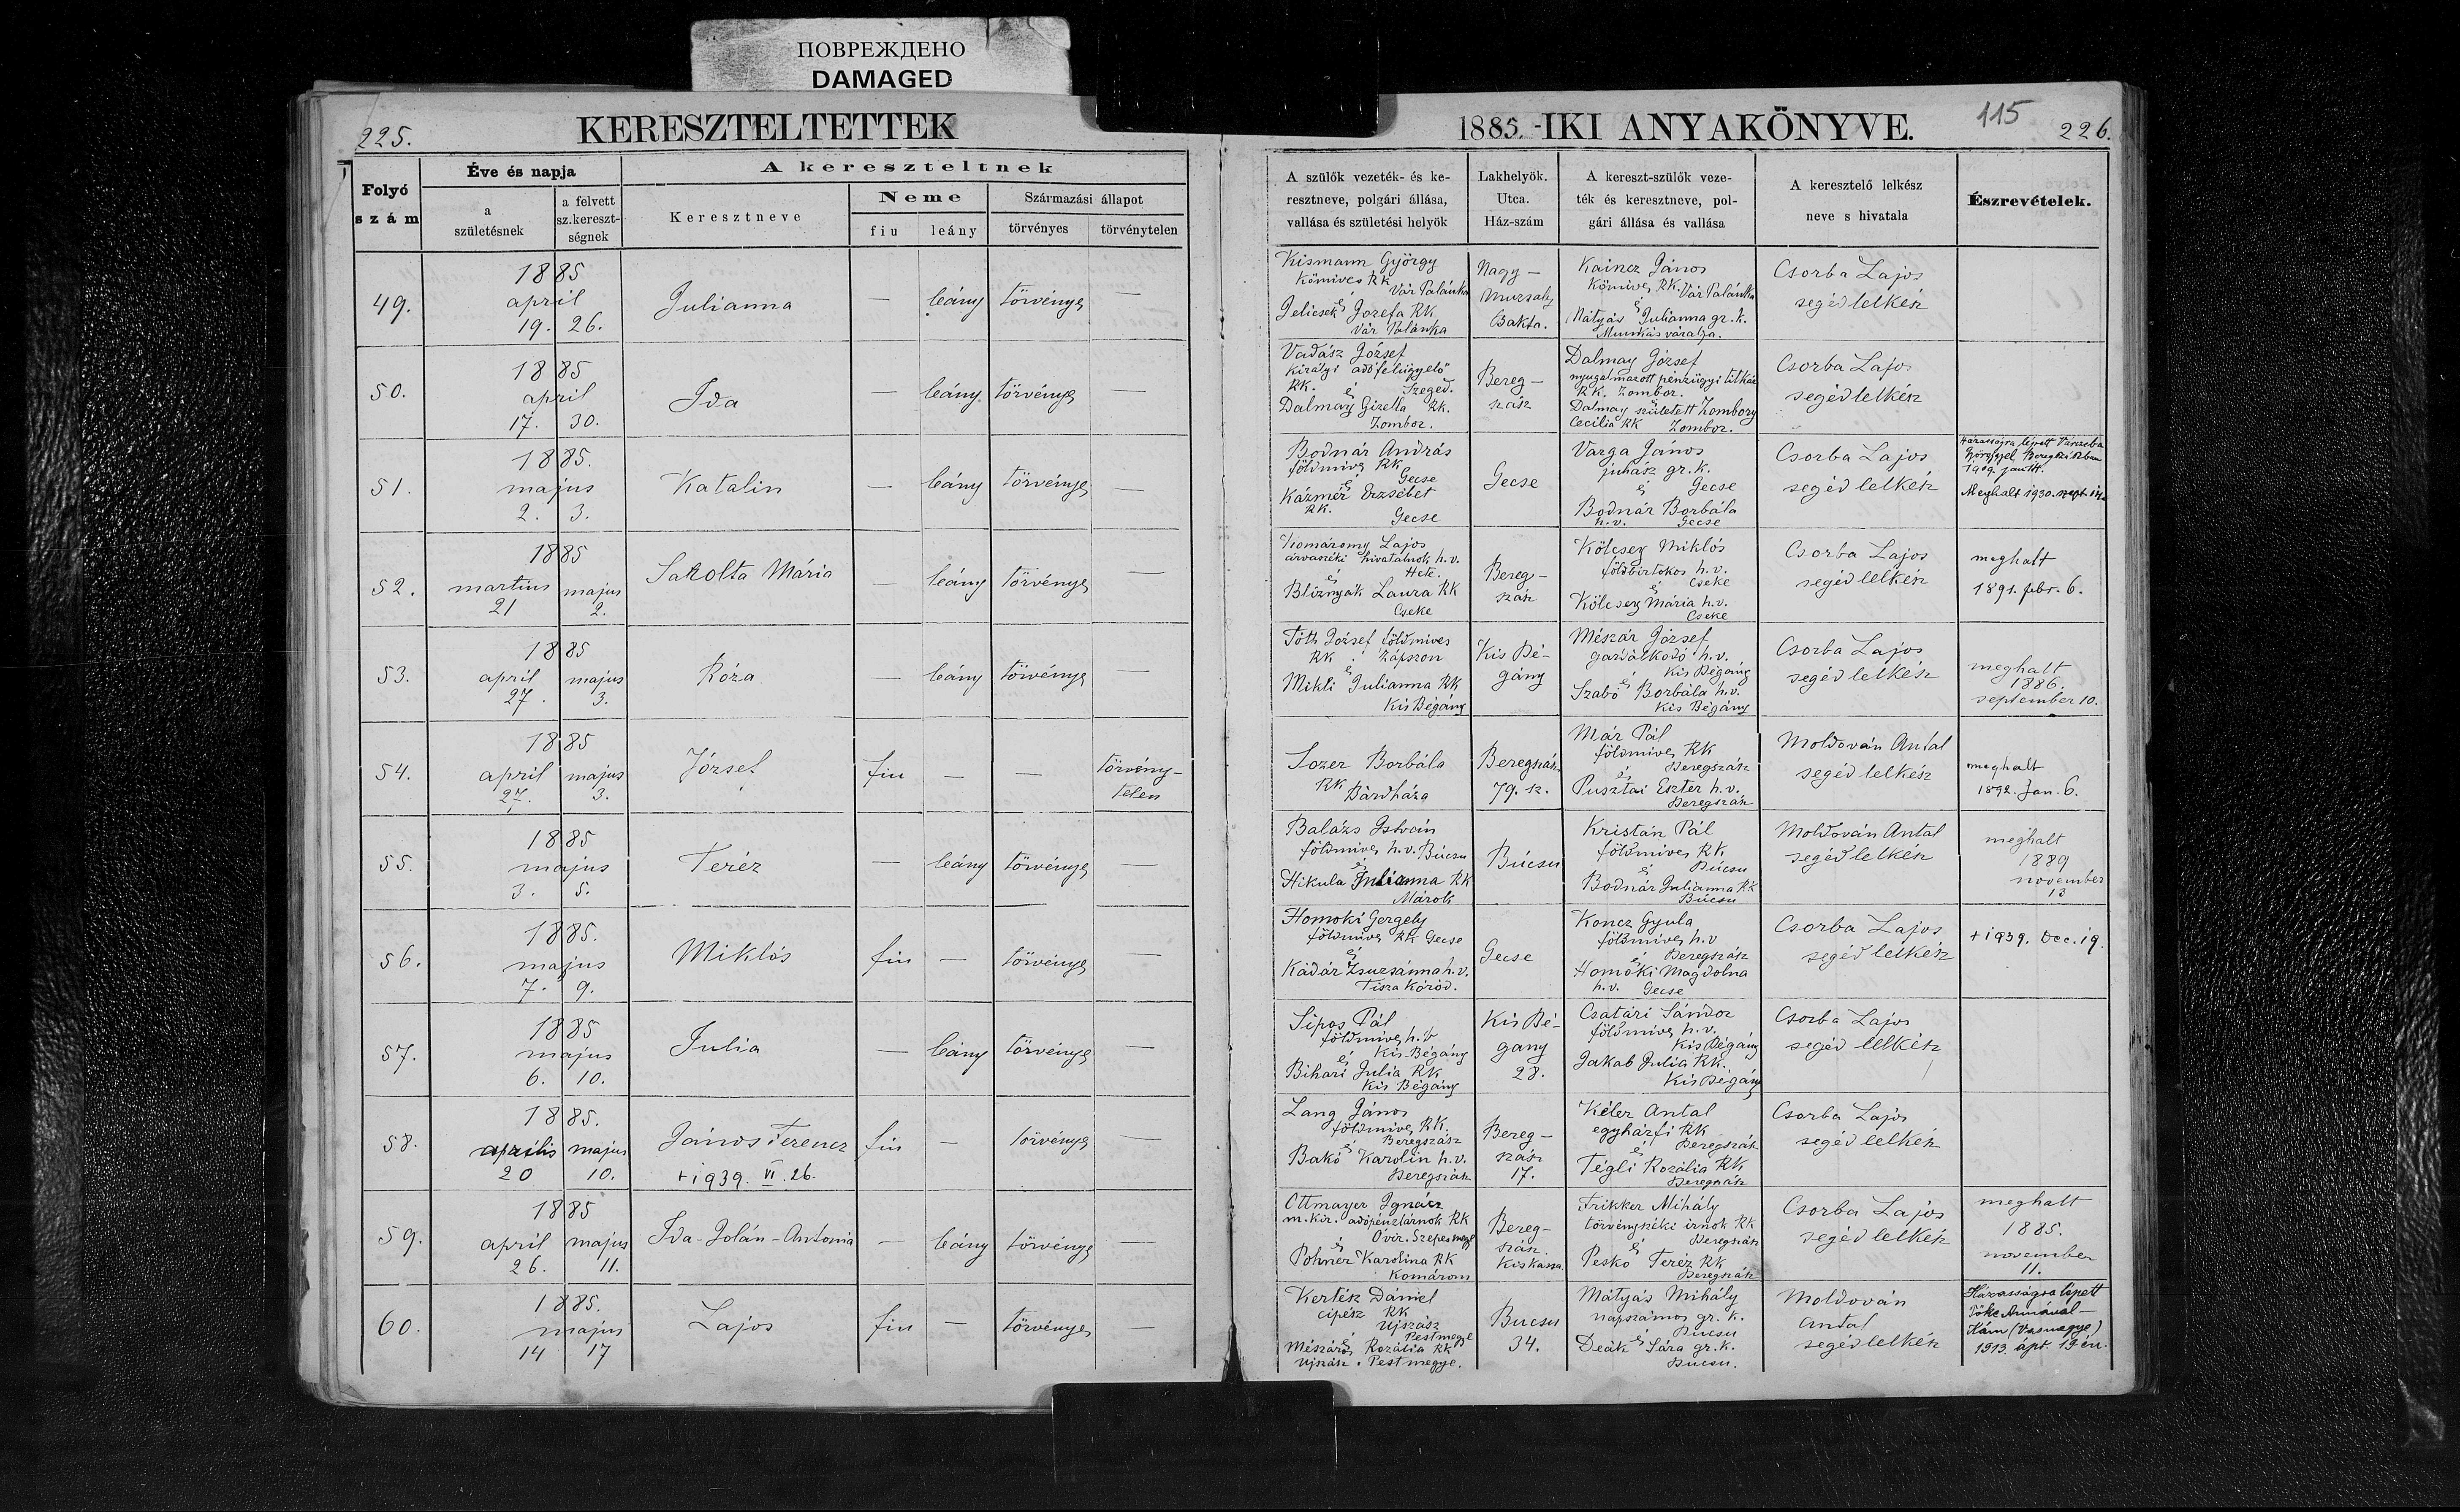 ПОВРЕЖДЕНО
DAMAGED
225.
KERESZTELTETTEK
Folyó
szám
Éve és napja
a
születésnek
a felvett
sz.kereszt-
ségnek
A kereszteltnek
Keresztneve
Neme
fiu
leány
Származási állapot
törvényes
törvénytelen
49.
1885
april
19. 26.
Julianna
— leány törvényes —
50.
1885
april
17. 30.
Ida
— leány törvényes —
51.
1885.
majus
2. 3.
Katalin
— leány törvényes —
52.
1885
martius majus
21 2.
Sarolta Mária
— leány törvényes —
53.
1885
april majus
27. 3.
Róza
— leány törvényes —
54.
1885
april majus
27. 3.
József
fiu — — törvény-
telen
55.
1885
majus
3. 5.
Teréz
— leány törvényes —
56.
1885.
majus
7. 9.
Miklós
fiu — törvényes —
57.
1885
majus
6. 10.
Julia
— leány törvényes —
58.
1885.
aprilis majus
20 10.
János Ferencz
+1939. VI. 26.
fiu — törvényes —
59.
1885
april majus
26. 11.
Ida-Jolán-Antonia
— leány törvényes —
60.
1885.
majus
14 17
Lajos
fiu — törvényes —
1885.-IKI ANYAKÖNYVE.
115
226.
A szülők vezeték- és ke-
resztneve, polgári állása,
vallása és születési helyök
Lakhelyök.
Utca.
Ház-szám
A kereszt-szülők veze-
ték és keresztneve, pol-
gári állása és vallása
A keresztelő lelkész
neve s hivatala
Észrevételek.
Kismann György
kömives RK
Vár Palánka
é
Jelicsek Jozefa RK
Vár Palánka
Nagy-
Muzsaly
Bakta.
Kaincz János
Kömives RK. Vár Palánka
é
Mátyás Julianna gr. k.
Munkás váralja.
Csorba Lajos
segéd lelkész
Vadász József
királyi adófelügyelő
RK. é Szeged.
Dalmay Gizella RK.
Zombor.
Bereg-
szász
Dalmay József
nyugalmazott pénzügyi titkár
RK. Zombor.
é
Dalmay született Zombory
Cecilia RK Zombor.
Csorba Lajos
segédlelkész
Bodnár András
földmives RK
é Gecse
Kázmér Erzsébet
RK.
Gecse
Gecse
Varga János
juhász gr. k.
é Gecse
Bodnár Borbála
h.v. Gecse
Csorba Lajos
segéd lelkész
Házasságra lépett
1909. jan.
Meghalt 1930. szept.
Komáromy Lajos
árvaszéki hivatalnok h.v.
é Hete.
Bliznyák Laura RK
Cseke
Bereg-
szász
Kölcsey Miklós
földbirtokos h.v.
é Cseke
Kölcsey Mária h.v.
Cseke
Csorba Lajos
segéd lelkész
meghalt
1891. febr. 6.
Tóth József földmives
RK. Zápszon
é
Mikli Julianna RK
Kis Bégány
Kis Bé-
gány
Mészár József
gazdálkodó h.v.
é Kis Bégány
Szabó Borbála h.v.
Kis Bégány
Csorba Lajos
segéd lelkész
meghalt
1886.
september 10.
Lozer Borbála
RK Bárdháza
Beregszász
79. sz.
Már Pál
földmives RK
é Beregszász
Pusztai Eszter h.v.
Beregszász
Moldován Antal
segéd lelkész
meghalt
1892. Jan. 6.
Balázs István
földmives h.v. Búcsu
é
Hikula Julianna RK
Márok
Búcsu
Kristán Pál
földmives RK
é Búcsu
Bodnár Julianna RK
Búcsu
Moldován Antal
segédlelkész
meghalt
1889
november
13
Homoki Gergely
földmives RK Gecse
é
Kádár Zsuzsánna h.v.
Tisza Kóród.
Gecse
Koncz Gyula
földmives h.v
é Beregszász
Homoki Magdolna
h.v. Gecse
Csorba Lajos
segéd lelkész
+1939. Dec. 19.
Sipos Pál
földmives h.v
é Kis Bégány
Bihari Julia RK
Kis Bégány
Kis Bé-
gany
28.
Csatári Sándor
földmives h.v.
Kis Bégány
Jakab Julia RK.
Kis Bégány
Csorba Lajos
segéd lelkész
Lang János
földmives RK.
é Beregszász
Bakó Karolin h.v.
Beregszász
Bereg-
szász
17.
Kéler Antal
egyházfi RK
é Beregszász
Tégli Rozália RK
Beregszász
Csorba Lajos
segéd lelkész
Ottmayer Ignácz
m. kir. adópénztárnok RK
Ovir. Szepesmegye
é
Pohner Karolina RK
Komárom
Bereg-
szász.
Kiskassa
Frikker Mihály
törvényszéki irnok RK
é Beregszász
Peskó Teréz RK
Beregszász
Csorba Lajos
segéd lelkész
meghalt
1885.
november
11.
Kertész Dániel
cipész RK
Ujszász
é Pestmegye
Mészáros Rozália RK
Ujszász. Pestmegye.
Bucsu
34.
Mátyás Mihály
napszámos gr. k.
é Bucsu
Deák Sára gr. k.
Bucsu.
Moldován
Antal
segéd lelkész
Házasságra lépett
Tőke Annával—
Kám (Vasmegye)
1913. ápr. 19 én.